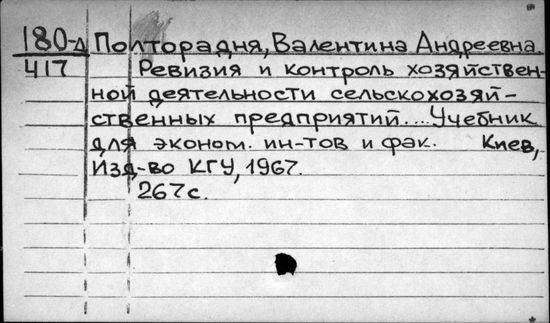 180-д Полторадня, Валентина Андреевна.
417 Ревизия и контроль хозяйствен-
ной деятельности сельскохозяй-
ственных предприятий.... Учебник
для эконом. ин-тов и фак. Киев,
Изд-во КГУ, 1967.
267 с.